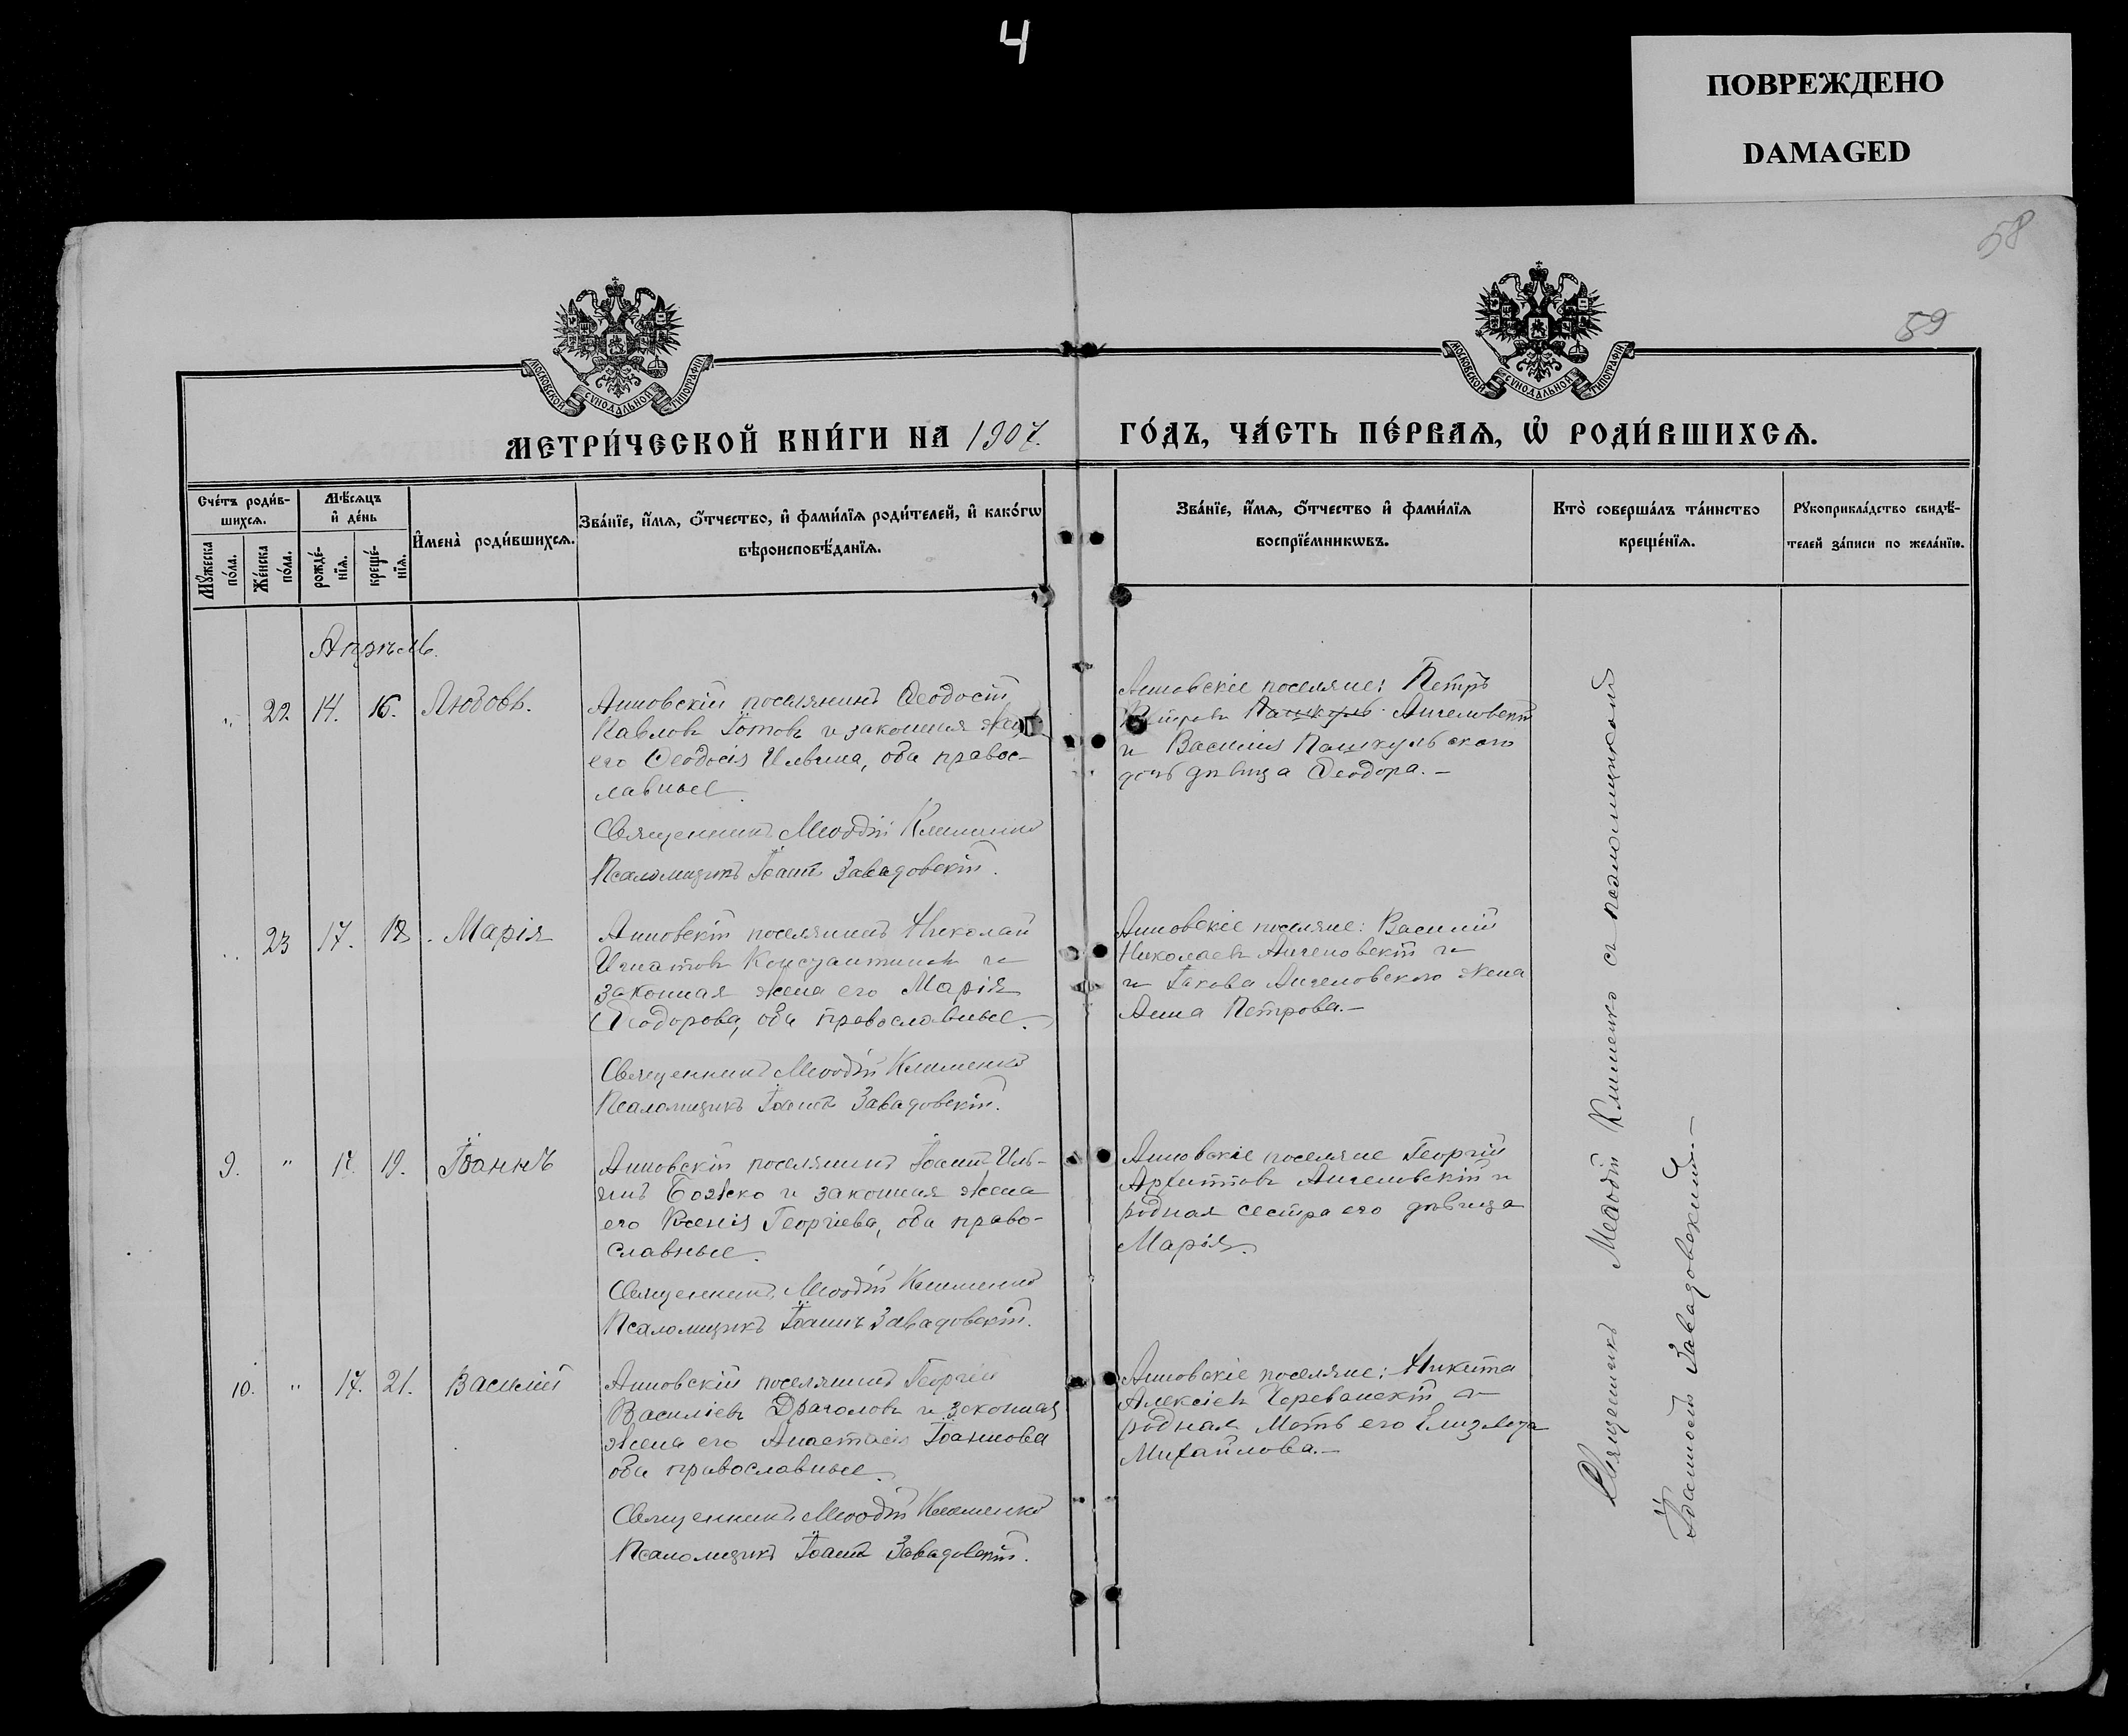 4
ПОВРЕЖДЕНО
DAMAGED
58
59
МОСКОВСКОЙ СѴНОДАЛЬНОЙ ТИПОГРАФІИ
МОСКОВСКОЙ СѴНОДАЛЬНОЙ ТИПОГРАФІИ
МЕТРИ́ЧЕСКОЙ КНИ́ГИ НА 1907.
ГО́ДЪ, ЧА́СТЬ ПЕ́РВАѦ, Ѡ҆ РОДИ́ВШИХСѦ.
Сче́тъ роди́в-
шихсѧ.
Мꙋ́жеска
по́ла.
Же́нска
по́ла.
Мѣ́сѧцъ
и҆ де́нь
рожде́-
нїѧ.
креще́-
нїѧ.
И҆мена̀ роди́вшихсѧ.
Зва́нїе, и҆́мѧ, ѻ҆́тчество, и҆ фами́лїѧ роди́телей, и҆ како́гѡ
вѣроисповѣ́данїѧ.
Зва́нїе, и҆́мѧ, ѻ҆́тчество и҆ фами́лїѧ
воспрїе́мникѡвъ.
Кто̀ соверша́лъ та́инство
креще́нїѧ.
Рꙋкоприкла́дство свидѣ́-
телей за́писи по жела́нїю.
Апрѣль.
" 22 14. 16. Любовь.
Анновскій поселянинъ Ѳеодосій
Павловъ Готовъ и законная жена
его Ѳеодосія Ильина, оба правос-
лавные.
Священникъ Меѳодій Клименко
Псаломщикъ Іоаннъ Завадовскій.
Анновскіе поселяне: Петръ
Петровъ Пашкуль Ангеловскій
и Василія Пашкульского
дочь дѣвица Ѳеодора.—
" 23 17. 18. Марія
Анновскій поселянинъ Николай
Игнатовъ Константиновъ и
законная жена его Марія
Ѳеодорова, оба православные.
Священникъ Меѳодій Клименко
Псаломщикъ Іоаннъ Завадовскій.
Анновскіе поселяне: Василій
Николаевъ Ангеловскій и
и Іакова Ангеловского жена
Анна Петрова.—
9. " 17. 19. Іоаннъ
Анновскій поселянинъ Іоаннъ Иль-
инъ Божко и законная жена
его Ксенія Георгіева, оба право-
славные.
Священникъ Меѳодій Клименко
Псаломщикъ Іоаннъ Завадовскій.
Анновскіе поселяне Георгій
Ангеловскій и
родная сестра его дѣвица
Марія.
10. " 17. 21. Василій
Анновскій поселянинъ Георгій
Василіевъ Драголовъ и законная
жена его Анастасія Іоаннова
оба православные.
Священникъ Меѳодій Клименко
Псаломщикъ Іоаннъ Завадовскій.
Анновскіе поселяне: Никита
Алексіевъ Череванскій и
родная мать его
Михайлова.—
Священникъ Меѳодій Клименко съ псаломщикомъ
Іоанномъ Завадовскимъ—